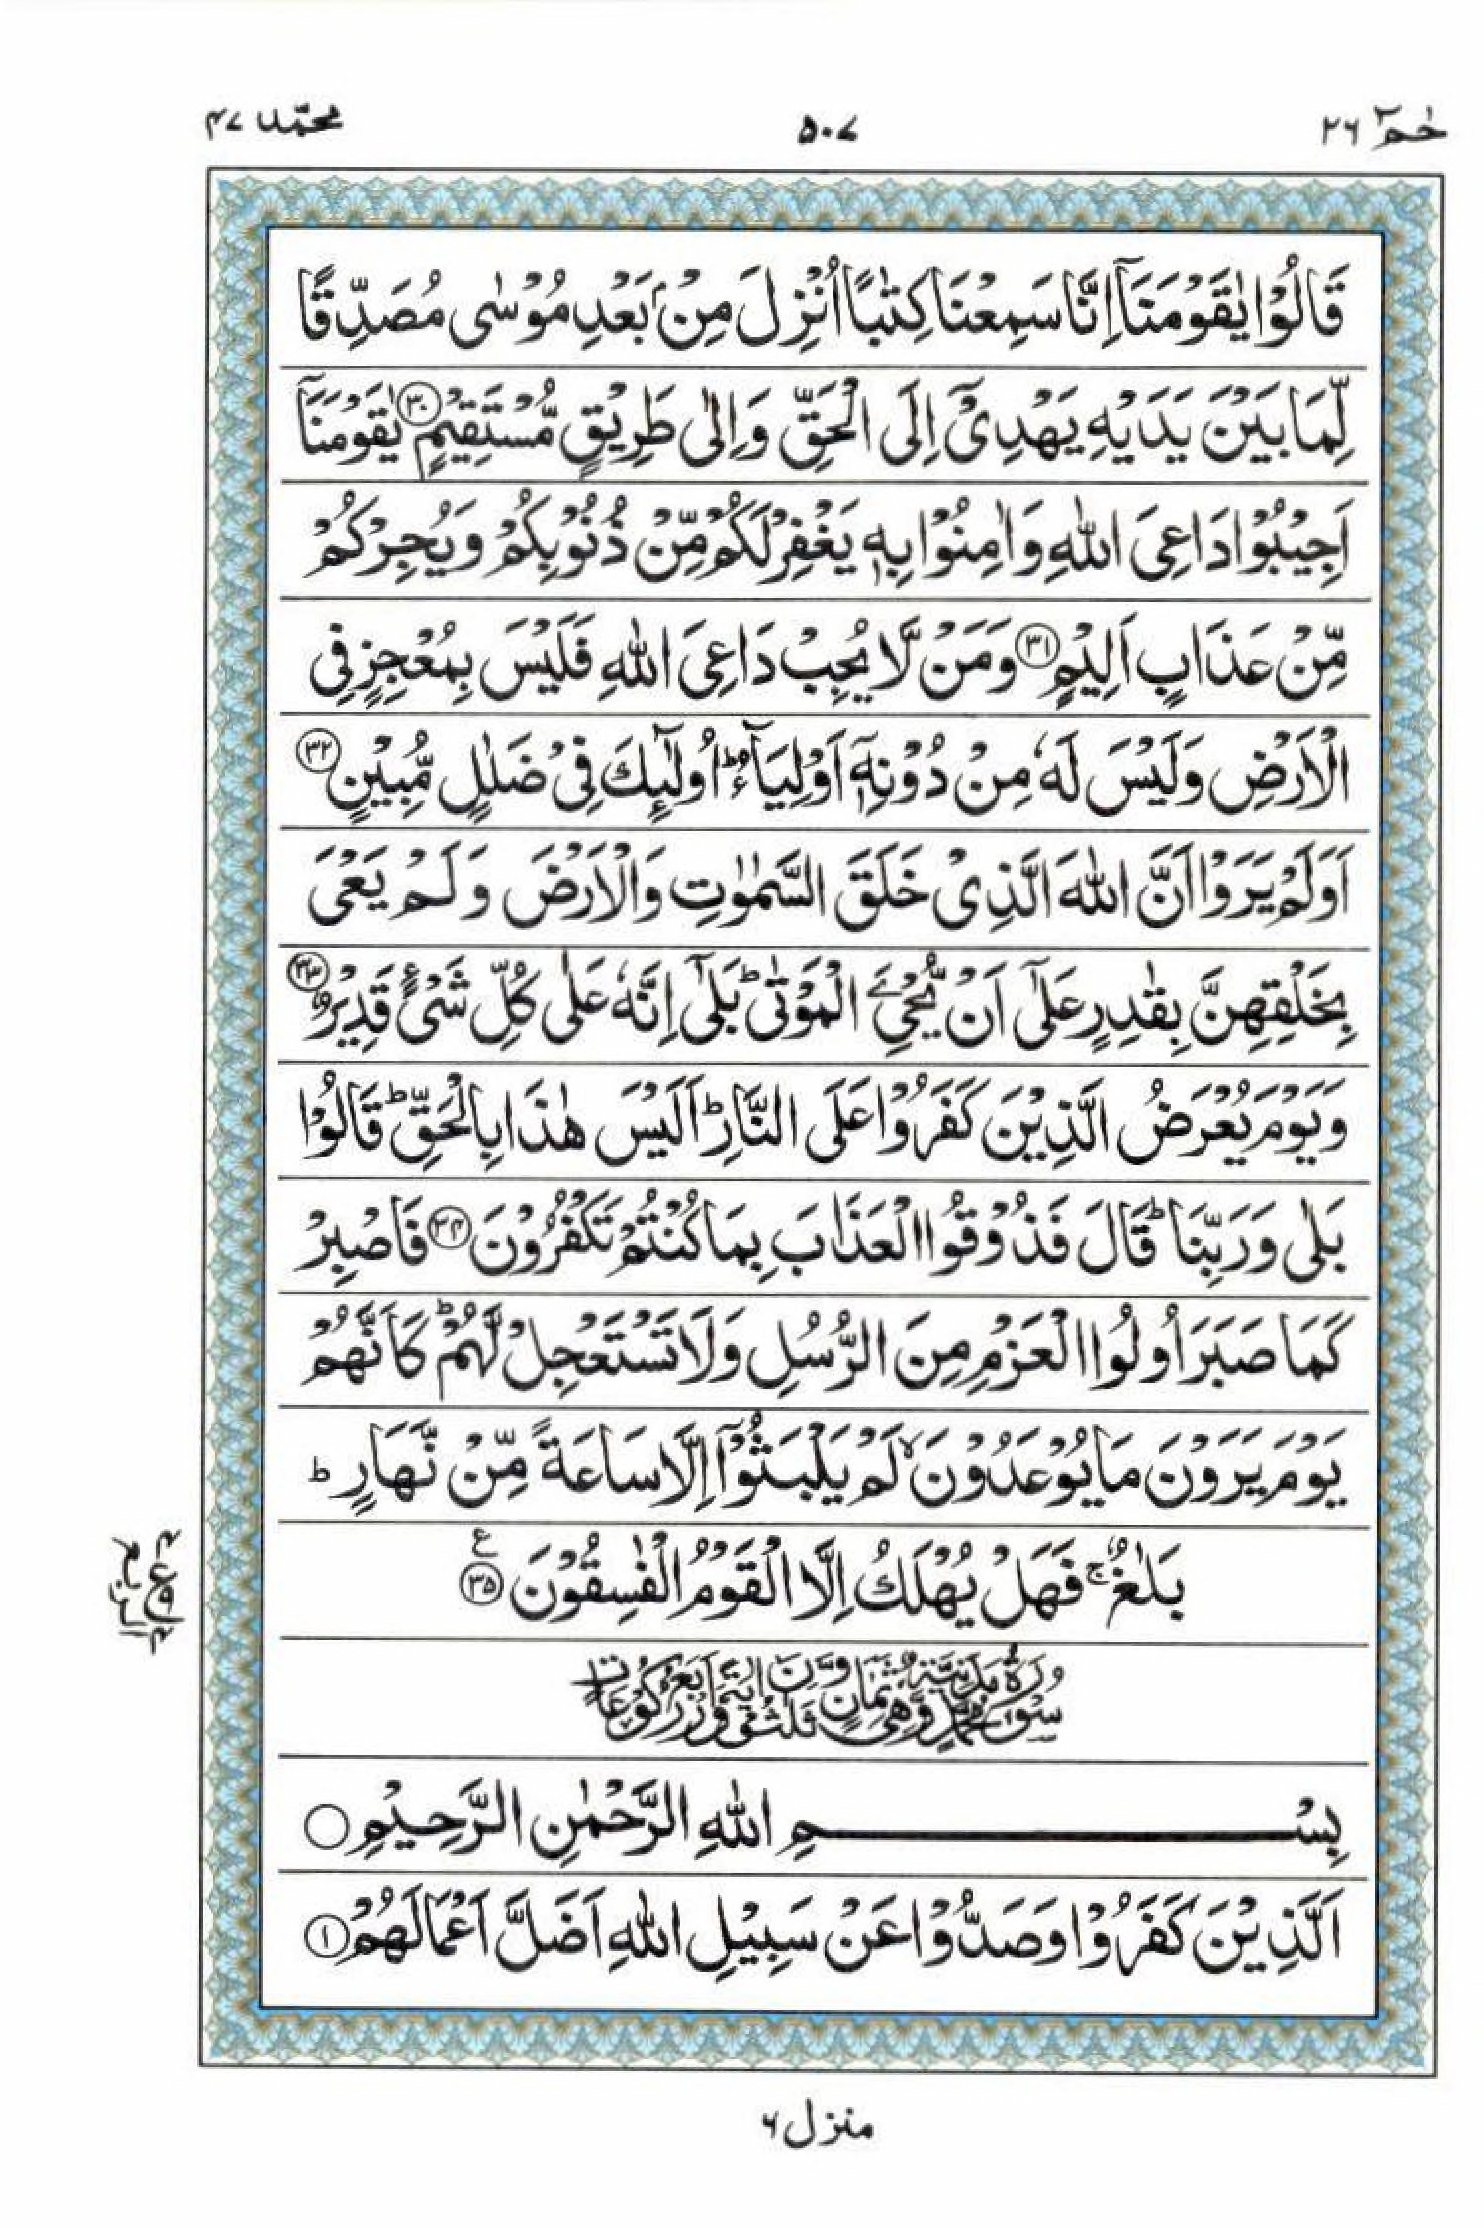 حٰمٓ ۲۶
۵۰۷
محمّد ۴۷
قَالُوْا يٰقَوْمَنَآ اِنَّا سَمِعْنَا كِتٰبًا اُنْزِلَ مِنْۢ بَعْدِ مُوْسٰى مُصَدِّقًا
لِّمَا بَيْنَ يَدَيْهِ يَهْدِيْٓ اِلَى الْحَقِّ وَاِلٰى طَرِيْقٍ مُّسْتَقِيْمٍ ۳۰ يٰقَوْمَنَآ
اَجِيْبُوْا دَاعِيَ اللّٰهِ وَاٰمِنُوْا بِهٖ يَغْفِرْ لَكُمْ مِّنْ ذُنُوْبِكُمْ وَيُجِرْكُمْ
مِّنْ عَذَابٍ اَلِيْمٍ ۳۱ وَمَنْ لَّا يُجِبْ دَاعِيَ اللّٰهِ فَلَيْسَ بِمُعْجِزٍ فِي
الْاَرْضِ وَلَيْسَ لَهٗ مِنْ دُوْنِهٖٓ اَوْلِيَآءُ ؕ اُولٰٓئِكَ فِيْ ضَلٰلٍ مُّبِيْنٍ ۳۲
اَوَلَمْ يَرَوْا اَنَّ اللّٰهَ الَّذِيْ خَلَقَ السَّمٰوٰتِ وَالْاَرْضَ وَلَمْ يَعْيَ
بِخَلْقِهِنَّ بِقٰدِرٍ عَلٰٓى اَنْ يُّحْيِۦَ الْمَوْتٰى ؕ بَلٰٓى اِنَّهٗ عَلٰى كُلِّ شَيْءٍ قَدِيْرٌ ۳۳
وَيَوْمَ يُعْرَضُ الَّذِيْنَ كَفَرُوْا عَلَى النَّارِ ؕ اَلَيْسَ هٰذَا بِالْحَقِّ ؕ قَالُوْا
بَلٰى وَرَبِّنَا ؕ قَالَ فَذُوْقُوا الْعَذَابَ بِمَا كُنْتُمْ تَكْفُرُوْنَ ۳۴ فَاصْبِرْ
كَمَا صَبَرَ اُولُوا الْعَزْمِ مِنَ الرُّسُلِ وَلَا تَسْتَعْجِلْ لَّهُمْ ؕ كَاَنَّهُمْ
يَوْمَ يَرَوْنَ مَا يُوْعَدُوْنَ ۙ لَمْ يَلْبَثُوْٓا اِلَّا سَاعَةً مِّنْ نَّهَارٍ ؕ
بَلٰغٌ ۚ فَهَلْ يُهْلَكُ اِلَّا الْقَوْمُ الْفٰسِقُوْنَ ۳۵ ع
سُوْرَةُ مُحَمَّدٍ مَدَنِيَّةٌ وَّهِيَ ثَمَانٍ وَّثَلٰثُوْنَ اٰيَةً وَّاَرْبَعُ رُكُوْعَاتٍ
بِسْمِ اللّٰهِ الرَّحْمٰنِ الرَّحِيْمِ
اَلَّذِيْنَ كَفَرُوْا وَصَدُّوْا عَنْ سَبِيْلِ اللّٰهِ اَضَلَّ اَعْمَالَهُمْ ۱
منزل ۶